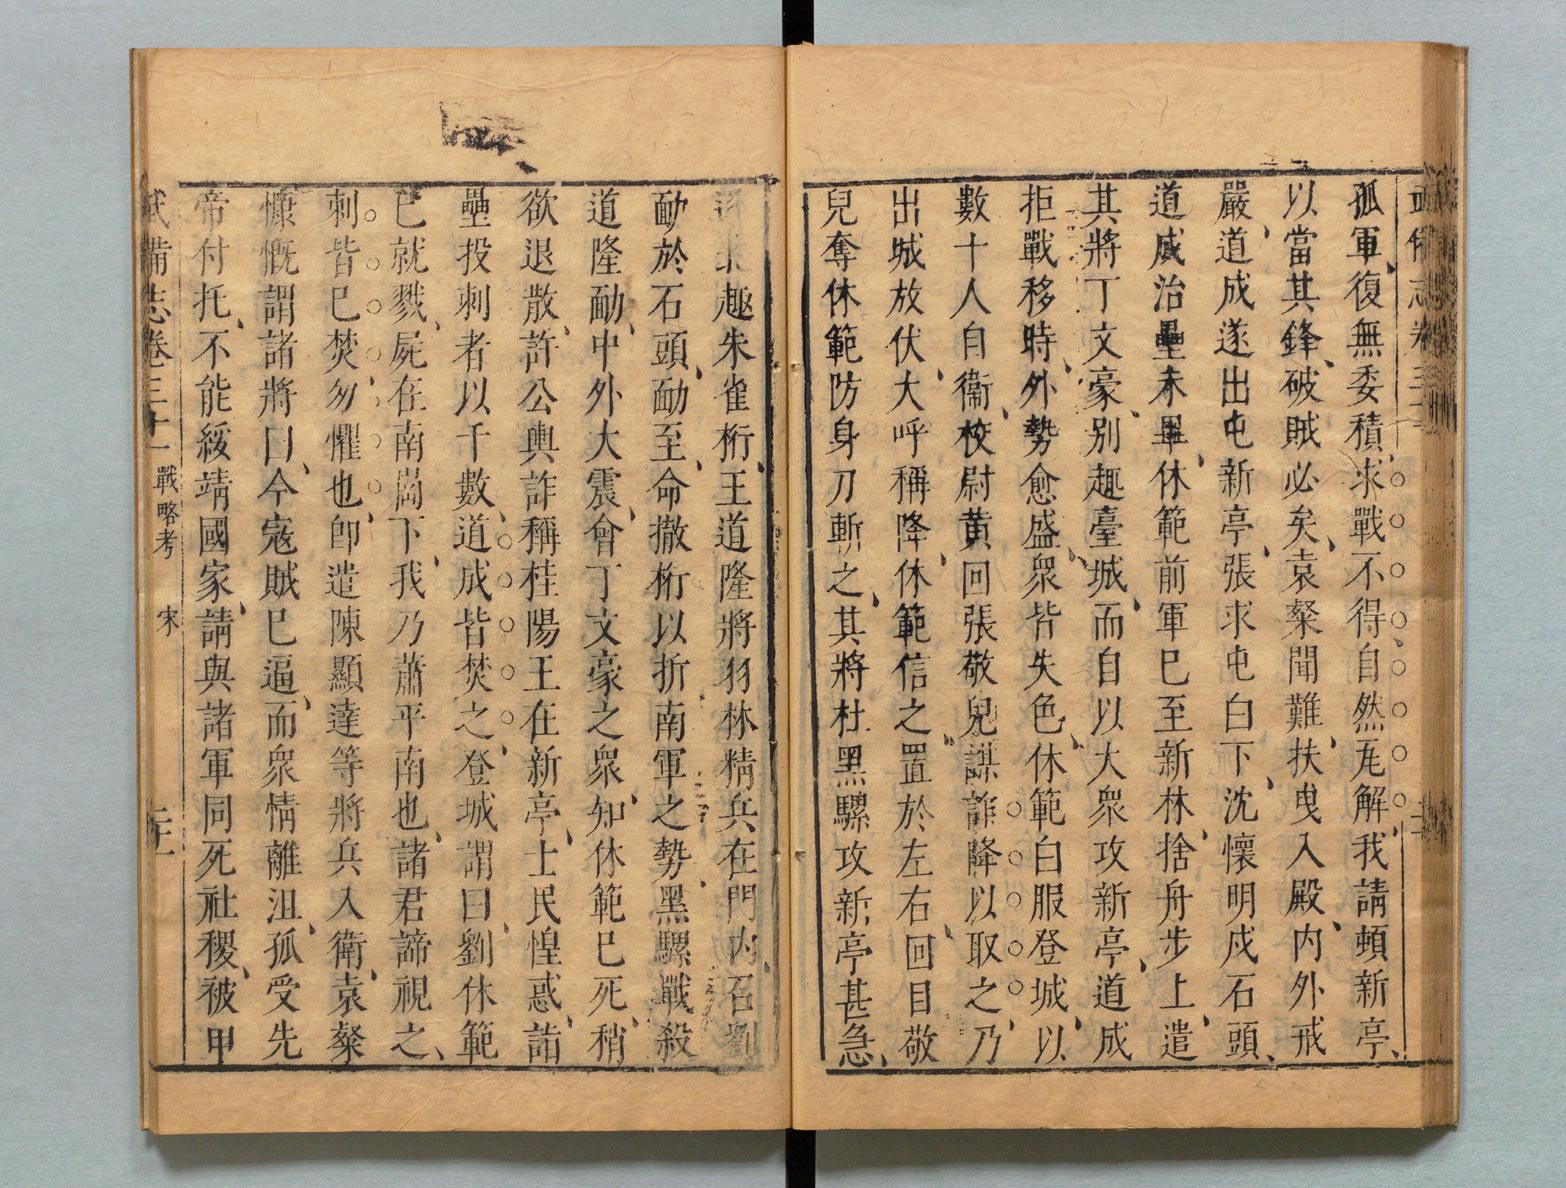 孤軍復無委積求戰不得自然瓦解我請頓新亭
以當其鋒破賊必矣袁粲聞難扶曳入殿內外戒
嚴道成遂出屯新亭張求屯白下沈懷明戍石頭
道成治壘未畢休範前軍已至新林捨舟步上遣
其將丁文豪別趣臺城而自以大衆攻新亭道成
拒戰移時外勢愈盛衆皆失色休範白服登城以
數十人自衞校尉黃回張敬兒謀詐降以取之乃
出城放伏大呼稱降休範信之置於左右回目敬
兒奪休範防身刀斬之其將杜黑騾攻新亭甚急
趣朱雀桁王道隆將羽林精兵在門內召劉
勔於石頭勔至命撤桁以折南軍之勢黑騾戰殺
道隆勔中外大震會丁文豪之衆知休範已死稍
欲退散許公輿詐稱桂陽王在新亭士民惶惑詣
壘投刺者以千數道成皆焚之登城謂曰劉休範
已就戮屍在南崗下我乃蕭平南也諸君諦視之
刺皆已焚勿懼也卽遣陳顯達等將兵入衛袁粲
慷慨謂諸將曰今寇賊已逼而衆情離沮孤受先
帝付托不能綏靖國家請與諸軍同死社稷被甲
武備志卷三十一 戰略考 宋 二十一